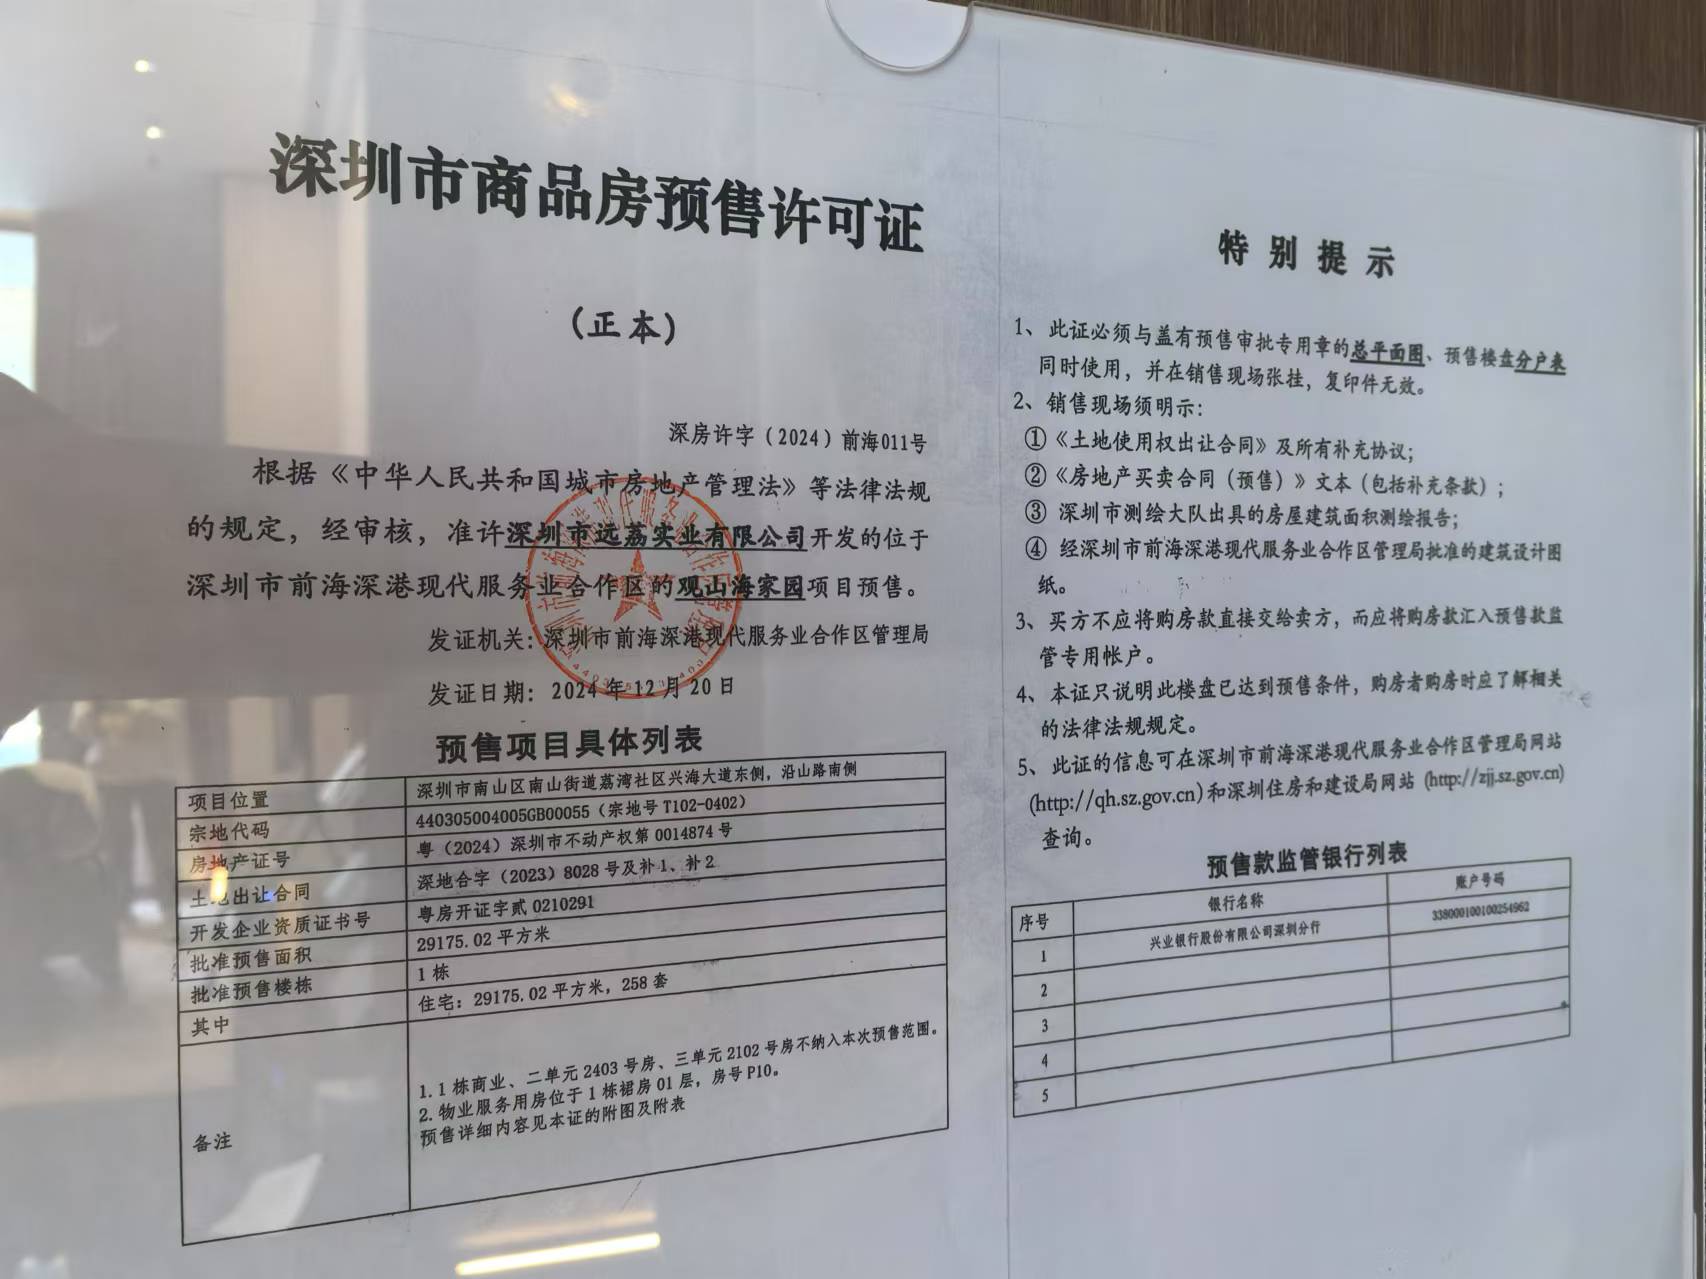 深圳市商品房预售许可证
（正本）
深房许字（2024）前海011号
根据《中华人民共和国城市房地产管理法》等法律法规
的规定，经审核，准许深圳市远荔实业有限公司开发的位于
深圳市前海深港现代服务业合作区的观山海家园项目预售。
发证机关：深圳市前海深港现代服务业合作区管理局
发证日期：2024年12月20日
预售项目具体列表
项目位置 深圳市南山区南山街道荔湾社区兴海大道东侧，沿山路南侧
宗地代码 440305004005GB00055（宗地号T102-0402）
房地产证号 粤（2024）深圳市不动产权第0014874号
土地出让合同 深地合字（2023）8028号及补1、补2
开发企业资质证书号 粤房开证字贰0210291
批准预售面积 29175.02平方米
批准预售楼栋 1栋
其中 住宅：29175.02平方米，258套
备注
1.1栋商业、二单元2403号房、三单元2102号房不纳入本次预售范围。
2.物业服务用房位于1栋裙房01层，房号P10。
预售详细内容见本证的附图及附表
特别提示
1、此证必须与盖有预售审批专用章的总平面图、预售楼盘分户表
同时使用，并在销售现场张挂，复印件无效。
2、销售现场须明示：
①《土地使用权出让合同》及所有补充协议；
②《房地产买卖合同（预售）》文本（包括补充条款）；
③ 深圳市测绘大队出具的房屋建筑面积测绘报告；
④ 经深圳市前海深港现代服务业合作区管理局批准的建筑设计图
纸。
3、买方不应将购房款直接交给卖方，而应将购房款汇入预售款监
管专用帐户。
4、本证只说明此楼盘已达到预售条件，购房者购房时应了解相关
的法律法规规定。
5、此证的信息可在深圳市前海深港现代服务业合作区管理局网站
(http://qh.sz.gov.cn)和深圳住房和建设局网站 (http://zjj.sz.gov.cn)
查询。
预售款监管银行列表
序号 银行名称 账户号码
1 兴业银行股份有限公司深圳分行 338000100100254962
2
3
4
5